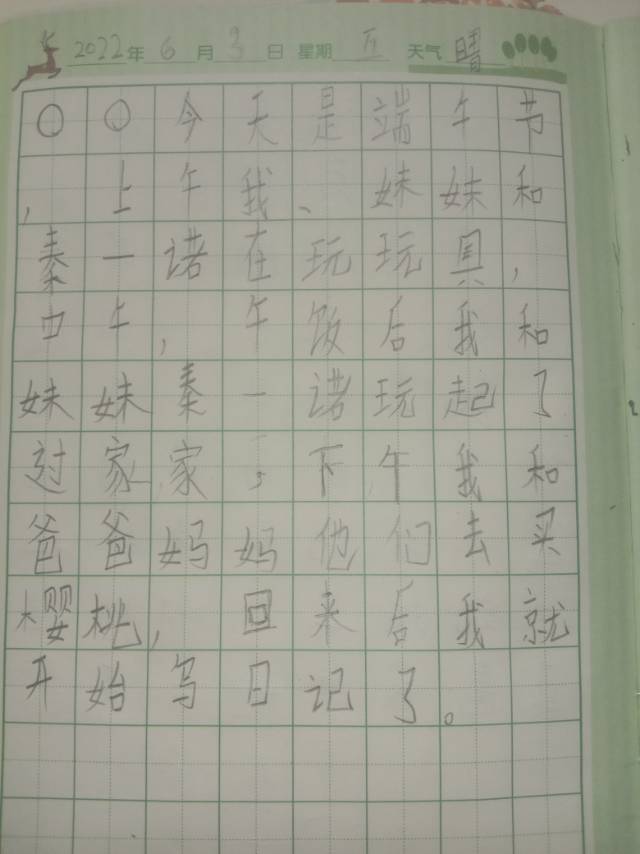 2022年 6月 3日 星期 五 天气 晴
○○今天是端午节
，上午我、妹妹和
秦一诺在玩玩具，
中午，午饭后我和
妹妹秦一诺玩起了
过家家，下午我和
爸爸妈妈他们去买
樱桃，回来后我就
开始写日记了。